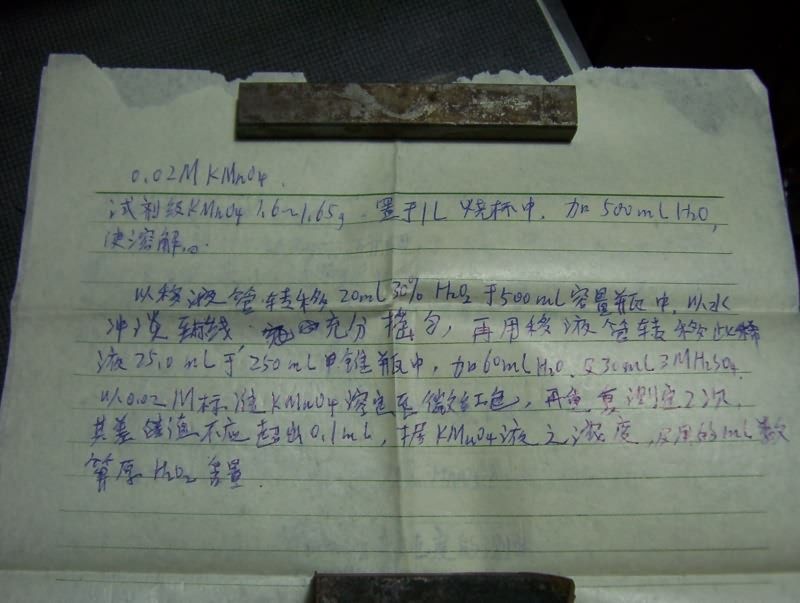 0.02M KMnO4.
试剂级KMnO4 1.6~1.65g. 置于1L 烧杯中. 加500mL H2O,
使溶解。
以移液管转移20mL 30% H2O2 于500mL容量瓶中, 以水
冲淡至 充分摇匀, 再用移液管转移此稀
液25.0 mL于250mL 锥瓶中, 加60mL H2O. 及30mL 3M H2SO4.
以0.02M标准KMnO4溶 至微红色, 再重复测定2次.
其差 不应超出0.1mL, 据KMnO4液之浓度, 及用的mL数
算原H2O2含量.